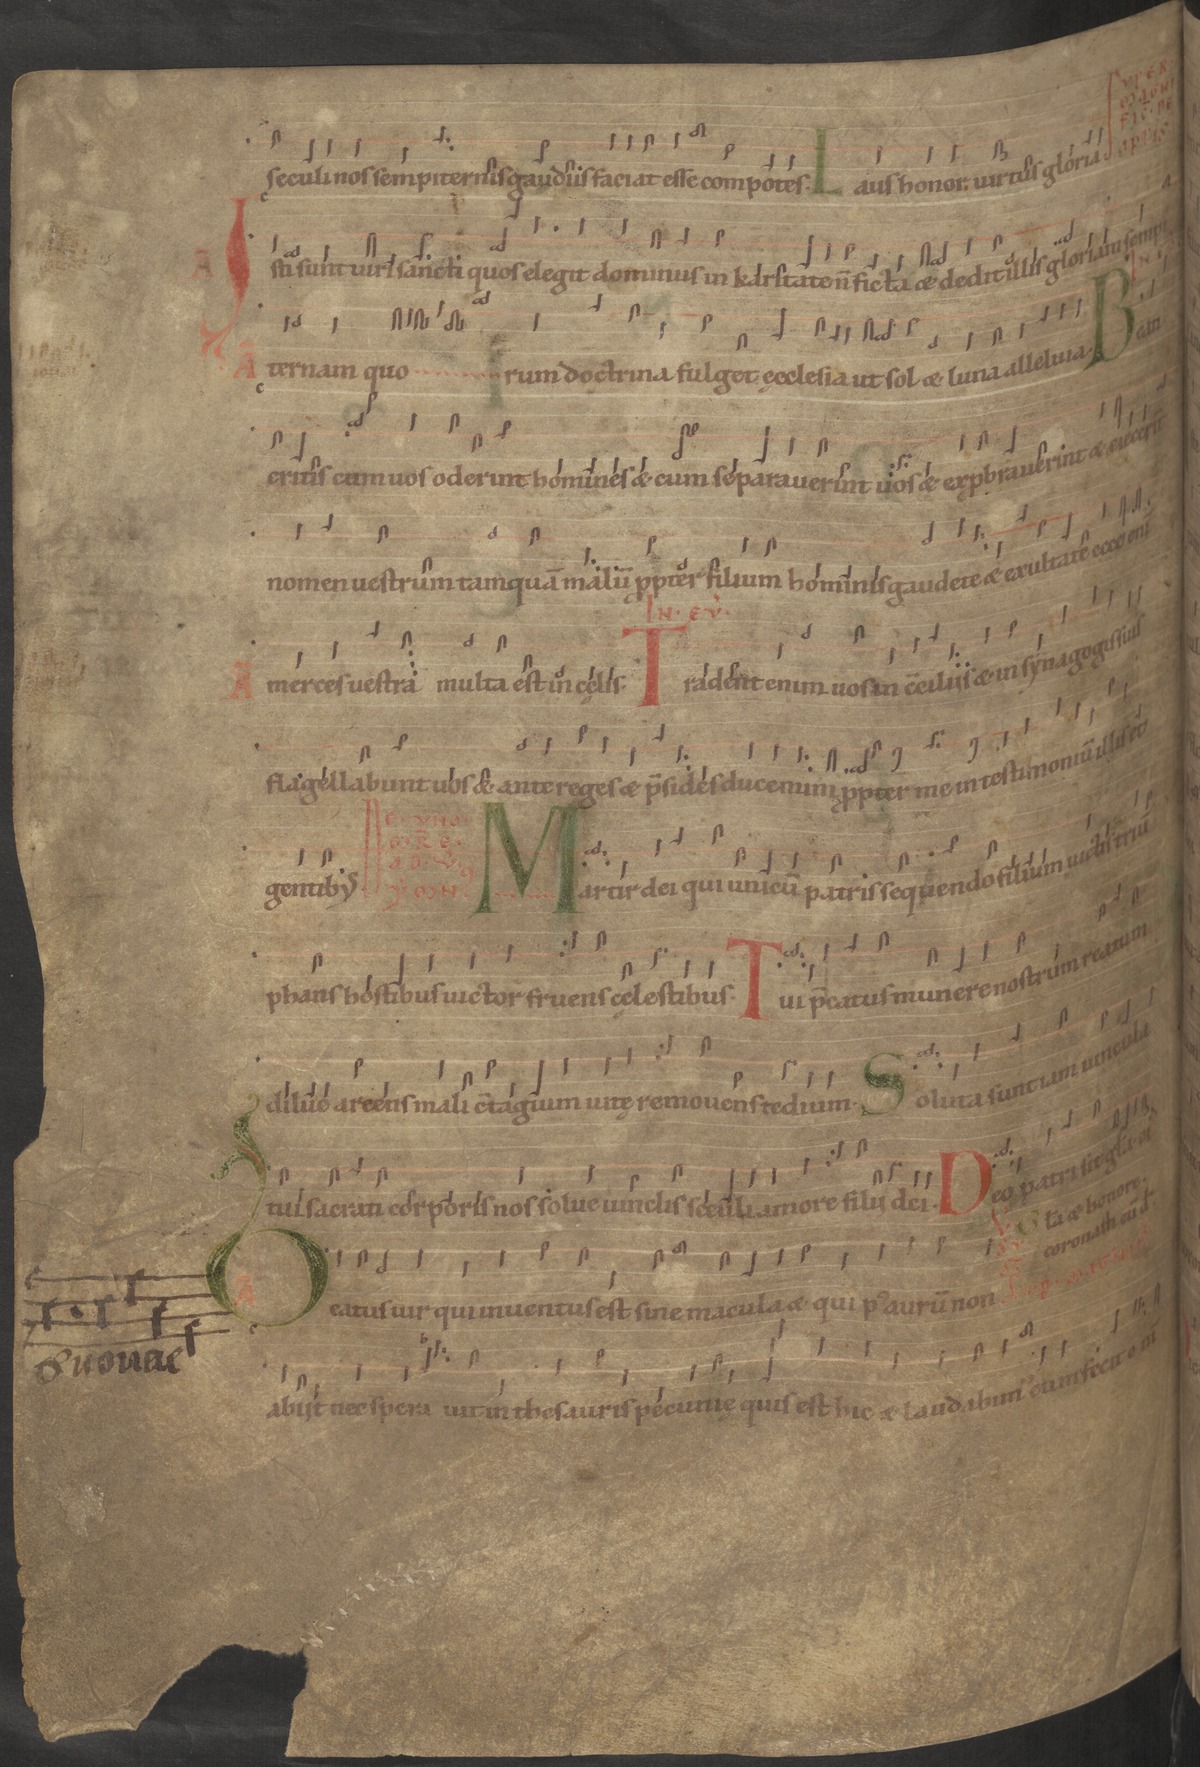 seculi nos sempiternis gaudiis faciat esse compotes. Laus honor. uirtus gloria
SVPER MAGNIFICAT
Isti sunt uiri sancti quos elegit dominus in karitate n̄ ficta & dedit illis gloriam sempi
ternam quo rum doctrina fulget ecclesia ut sol & luna alleluia. Beati
eritis cum uos oderint homines & cum separauerint uos & exprobrauerint & eiecerint
nomen uestrum tamquā malū ppter filium hominis gaudete & exultate ecce eni
IN. EV̄.
merces uestra multa est in celis. Tradent enim uos in c̄ciliis & in synagogis suis
flagellabunt uos & ante reges & p̄sides ducemini ppter me in testimoniū illis et
gentibȝ Martir dei qui unicū patris sequendo filium uictis triū
phans hostibus uictor fruens celestibus. Tui p̄catus munere nostrum reatum
diluo arcens mali c̄tagium uite remouens tedium. Soluta sunt iam uincula
tui sacrati corporis nos solue uinclis seculi amore filij dei. Deo patri sit gl̄a
Gl̄a & honore.
coronasti eū d̄.
Beatus uir qui inuentus est sine macula & qui p' aurū non
euouae
abijt nec spera uit in thesauris pecunie quis est hic & laudabim' eum fecit